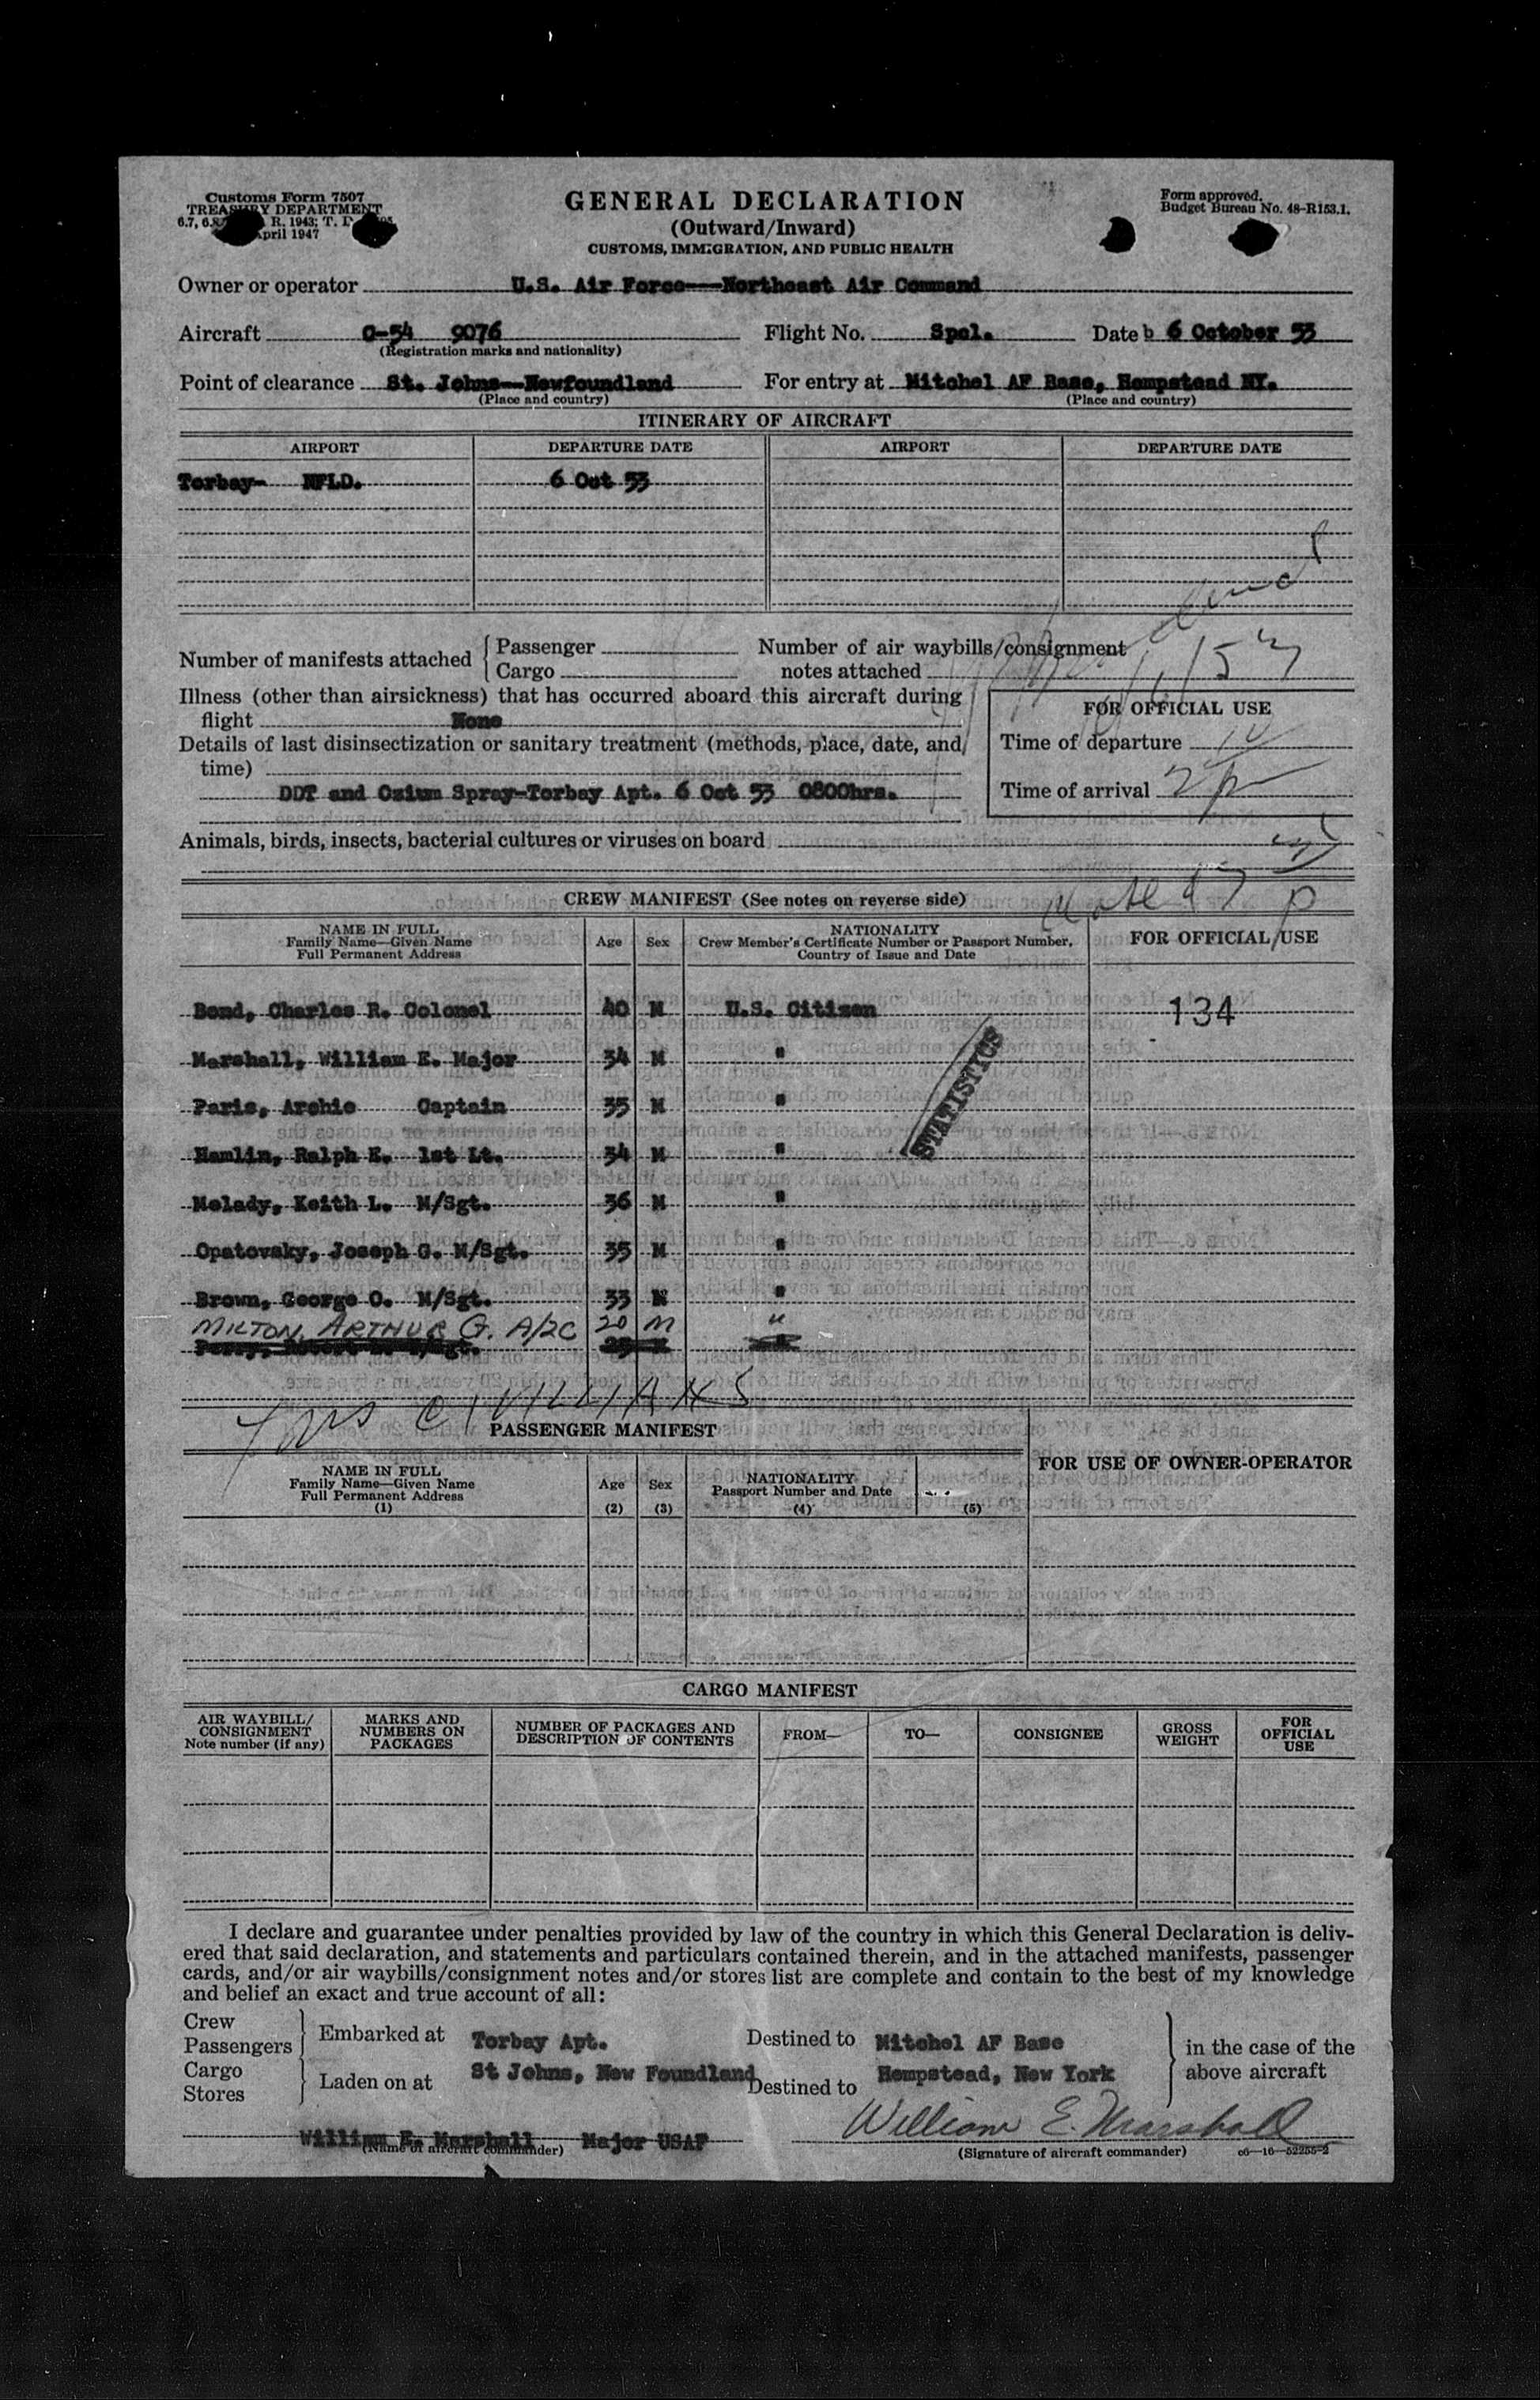 Customs Form 7507
TREASURY DEPARTMENT
R. 1943; T. D.
April 1947
GENERAL DECLARATION
(Outward/Inward)
CUSTOMS, IMMIGRATION, AND PUBLIC HEALTH
Form approved.
Budget Bureau No. 48-R153.1.
Owner or operator U.S. Air Force---Northeast Air Command
Aircraft C-54 9076 Flight No. Spcl. Date 6 October 53
(Registration marks and nationality)
Point of clearance St. Johns--Newfoundland For entry at Mitchel AF Base, Hempstead NY.
(Place and country) (Place and country)
ITINERARY OF AIRCRAFT
AIRPORT DEPARTURE DATE AIRPORT DEPARTURE DATE
Torbay- NFLD. 6 Oct 53
Number of manifests attached { Passenger
Cargo
Number of air waybills/consignment
notes attached
Illness (other than airsickness) that has occurred aboard this aircraft during
flight None
Details of last disinsectization or sanitary treatment (methods, place, date, and
time)
DDT and Ozium Spray-Torbay Apt. 6 Oct 53 0800hrs.
FOR OFFICIAL USE
Time of departure 10
Time of arrival 2p
Animals, birds, insects, bacterial cultures or viruses on board
CREW MANIFEST (See notes on reverse side)
NAME IN FULL
Family Name—Given Name
Full Permanent Address
Age Sex
NATIONALITY
Crew Member's Certificate Number or Passport Number,
Country of Issue and Date
FOR OFFICIAL USE
Bond, Charles R. Colonel 40 M U.S. Citizen 134
Marshall, William E. Major 34 M "
STATISTICS
Paris, Archie Captain 35 M "
Hamlin, Ralph E. 1st Lt. 34 M "
Melady, Keith L. M/Sgt. 36 M "
Opatovsky, Joseph G. M/Sgt. 35 M "
Brown, George O. M/Sgt. 33 M "
MILTON, ARTHUR G. A/2C 20 M "
CIVILIANS
PASSENGER MANIFEST
NAME IN FULL
Family Name—Given Name
Full Permanent Address
(1)
Age
(2)
Sex
(3)
NATIONALITY
Passport Number and Date
(4)
(5)
FOR USE OF OWNER-OPERATOR
CARGO MANIFEST
AIR WAYBILL/
CONSIGNMENT
Note number (if any)
MARKS AND
NUMBERS ON
PACKAGES
NUMBER OF PACKAGES AND
DESCRIPTION OF CONTENTS
FROM—
TO—
CONSIGNEE
GROSS
WEIGHT
FOR
OFFICIAL
USE
I declare and guarantee under penalties provided by law of the country in which this General Declaration is deliv-
ered that said declaration, and statements and particulars contained therein, and in the attached manifests, passenger
cards, and/or air waybills/consignment notes and/or stores list are complete and contain to the best of my knowledge
and belief an exact and true account of all:
Crew
Passengers } Embarked at Torbay Apt. Destined to Mitchel AF Base
Cargo
Stores } Laden on at St Johns, New Foundland Destined to Hempstead, New York
in the case of the
above aircraft
William E. Marshall Major USAF William E. Marshall
(Name of aircraft commander) (Signature of aircraft commander) c6—16—52255-2